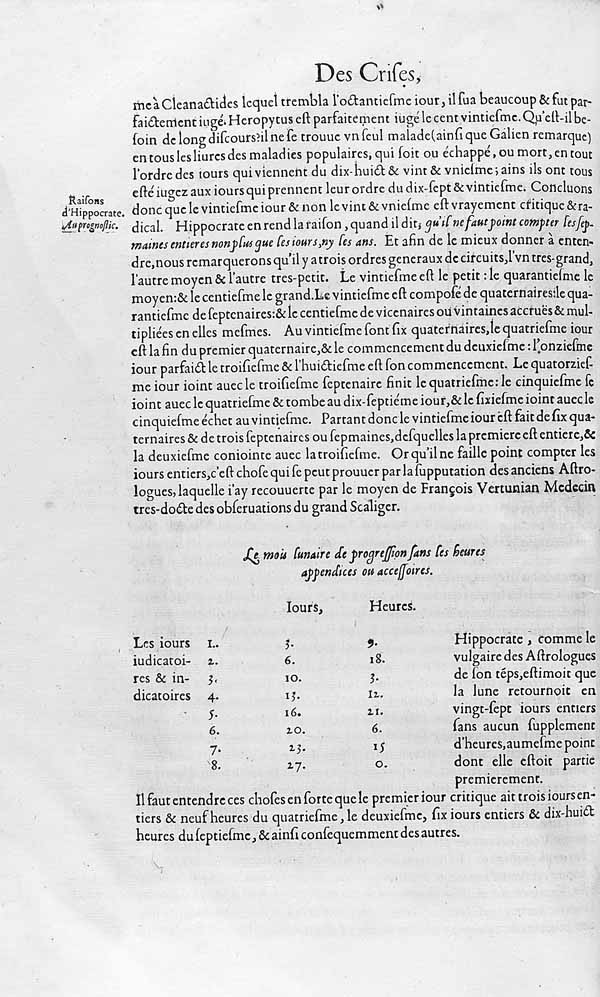 Des Crises,
me à Cleanactides lequel trembla l'octantiesme iour, il sua beaucoup & fut par-
faictement iugé. Heropytus est parfaitement iugé le cent vintiesme. Qu'est-il be-
soin de long discours? il ne se trouue vn seul malade (ainsi que Galien remarque)
en tous les liures des maladies populaires, qui soit ou échappé, ou mort, en tout
l'ordre des iours qui viennent du dix-huict & vint & vniesme; ains ils ont tous
esté iugez aux iours qui prennent leur ordre du dix-sept & vintiesme. Concluons
Raisons
d'Hippocrate.
Au prognostic.
donc que le vintiesme iour & non le vint & vniesme est vrayement critique & ra-
dical. Hippocrate en rend la raison, quand il dit, qu'il ne faut point compter les sep-
maines entieres non plus que les iours, ny les ans. Et afin de le mieux donner à enten-
dre, nous remarquerons qu'il y a trois ordres generaux de circuits, l'vn tres-grand,
l'autre moyen & l'autre tres-petit. Le vintiesme est le petit: le quarantiesme le
moyen: & le centiesme le grand. Le vintiesme est composé de quaternaires: le qua-
rantiesme de septenaires: & le centiesme de vicenaires ou vintaines accruës & mul-
tipliées en elles mesmes. Au vintiesme sont six quaternaires, le quatriesme iour
est la fin du premier quaternaire, & le commencement du deuxiesme: l'onziesme
iour parfaict le troisiesme & l'huictiesme est son commencement. Le quatorzies-
me iour ioint auec le troisiesme septenaire finit le quatriesme: le cinquiesme se
ioint auec le quatriesme & tombe au dix-septiéme iour, & le sixiesme ioint auec le
cinquiesme échet au vintiesme. Partant donc le vintiesme iour est fait de six qua-
ternaires & de trois septenaires ou sepmaines, desquelles la premiere est entiere, &
la deuxiesme coniointe auec la troisiesme. Or qu'il ne faille point compter les
iours entiers, c'est chose qui se peut prouuer par la supputation des anciens Astro-
logues, laquelle i'ay recouuerte par le moyen de François Vertunian Medecin
tres-docte des obseruations du grand Scaliger.
Le mois lunaire de progression sans les heures
appendices ou accessoires.
Iours, Heures.
Les iours 1.. 3. 9.
iudicatoi- 2. 6. 18.
res & in- 3. 10. 3.
dicatoires 4. 13. 12.
5. 16. 21.
6. 20. 6.
7. 23. 15
8. 27. 0.
Hippocrate, comme le
vulgaire des Astrologues
de son tẽps, estimoit que
la lune retournoit en
vingt-sept iours entiers
sans aucun supplement
d'heures, au mesme point
dont elle estoit partie
premierement.
Il faut entendre ces choses en sorte que le premier iour critique ait trois iours en-
tiers & neuf heures du quatriesme, le deuxiesme, six iours entiers & dix-huict
heures du septiesme, & ainsi consequemment des autres.